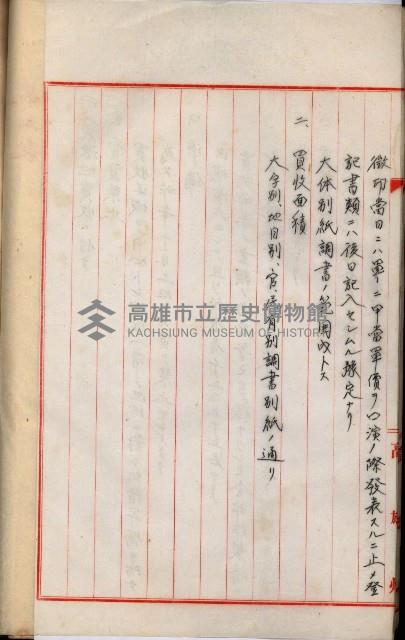 徴印當日ニハ單ニ甲當單價ヲ口演ノ際發表スルニ止メ登
記書類ニハ後日記入セシムル豫定ナリ
大体別紙調書ノ範囲内トス
二、買收面積
大字別、地目別、官、民有別調書別紙ノ通リ
高雄州
高雄市立歷史博物館
KAOHSIUNG MUSEUM OF HISTORY